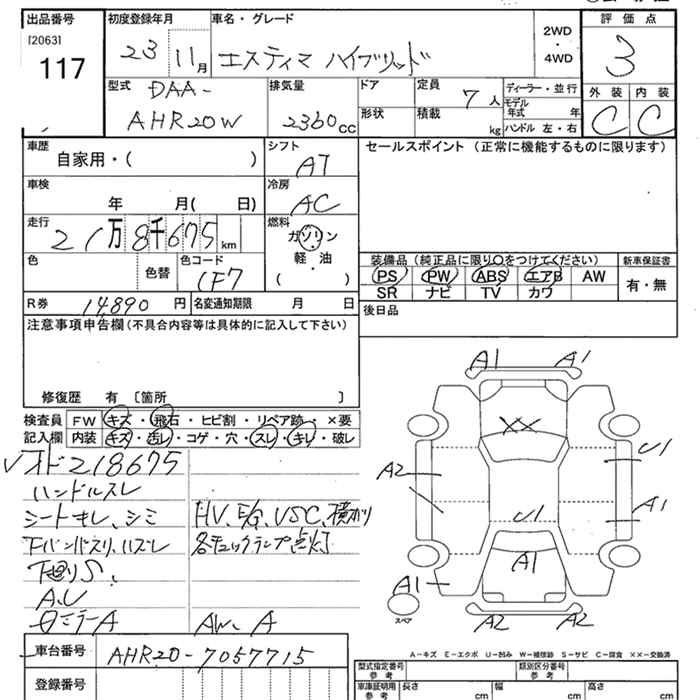 出品番号
[2063]
117
初度登録年月
23 11月
車名・グレード
エスティマ ハイブリッド
2WD
・
4WD
評価点
3
外装 内装
C C
型式
DAA-
AHR20W
排気量
2360cc
ドア
形状
定員 7人
積載 kg
ディーラー・並行
モデル年式 年
ハンドル 左・右
車歴
自家用・( )
シフト
AT
セールスポイント (正常に機能するものに限ります)
車検
年 月( 日)
冷房
AC
走行
21万8千675km
燃料
ガソリン
・
軽・油
・
( )
色
色替
色コード
1F7
装備品 (純正品に限り○をつけてください)
PS PW ABS エアB AW
SR ナビ TV カワ
新車保証書
有・無
R券 14,890円
名変通知期限 月 日
後日品
注意事項申告欄 (不具合内容等は具体的に記入して下さい)
修復歴 有 〔箇所 〕
検査員記入欄
FW キズ・飛石・ヒビ割・リペア跡・×要
内装 キズ・汚レ・コゲ・穴・スレ・キレ・破レ
オド218675
ハンドルスレ
シートキレ、シミ
HV、E/G、VSC、横スベリ
下バンパスリ、ハズレ
各チェックランプ点灯
下廻りS、
A、U
ミラーA
AW、A
車台番号 AHR20-7057715
登録番号
A1 A1
XX
U1
A2
A1
U1
A1
A1
スペア
A2 A2
A-キズ E-エクボ U-凹み W-補修跡 S-サビ C-腐食 XX-交換済
型式指定番号 参考
類別区分番号 参考
車庫証明用 参考
長さ cm
幅 cm
高さ cm